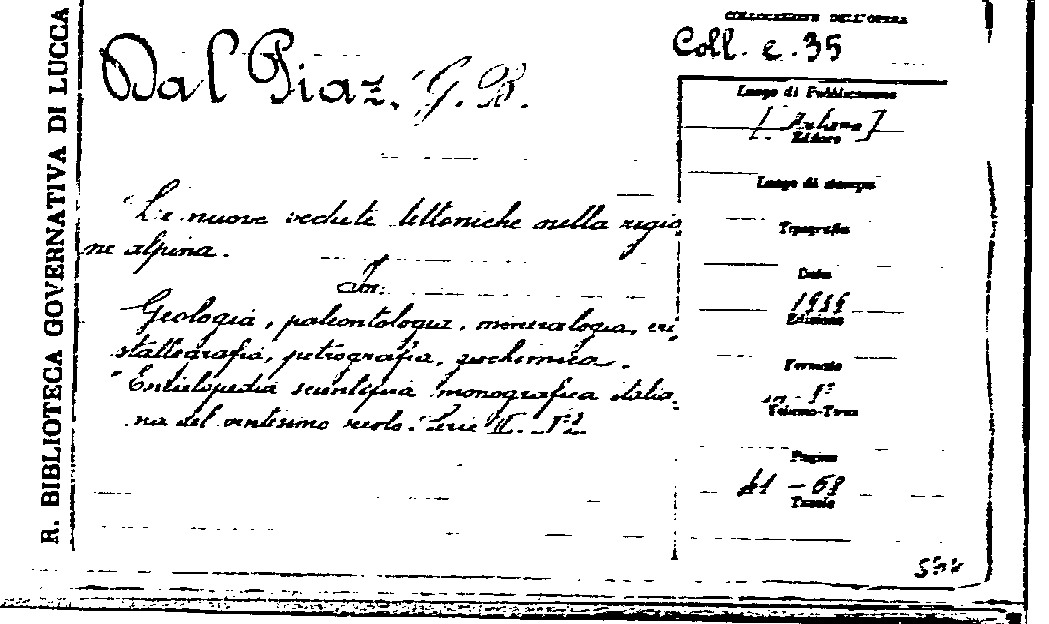 R. BIBLIOTECA GOVERNATIVA DI LUCCA
COLLOCAZIONE DELL'OPERA
Coll. e. 35
Dal Piaz, G. B.
Le nuove vedute tettoniche nella regio-
ne alpina.
In:
Geologia, paleontologia, mineralogia, cri-
stallografia, petrografia, geochimica.
"Enciclopedia scientifica monografica italia-
na del ventesimo secolo. Serie II.
Luogo di Pubblicazione
Editore
Luogo di stampa
Tipografia
Data
Edizione
Formato
in - 8°
Volume-Tomo
Pagine
41 - 68
Tavole